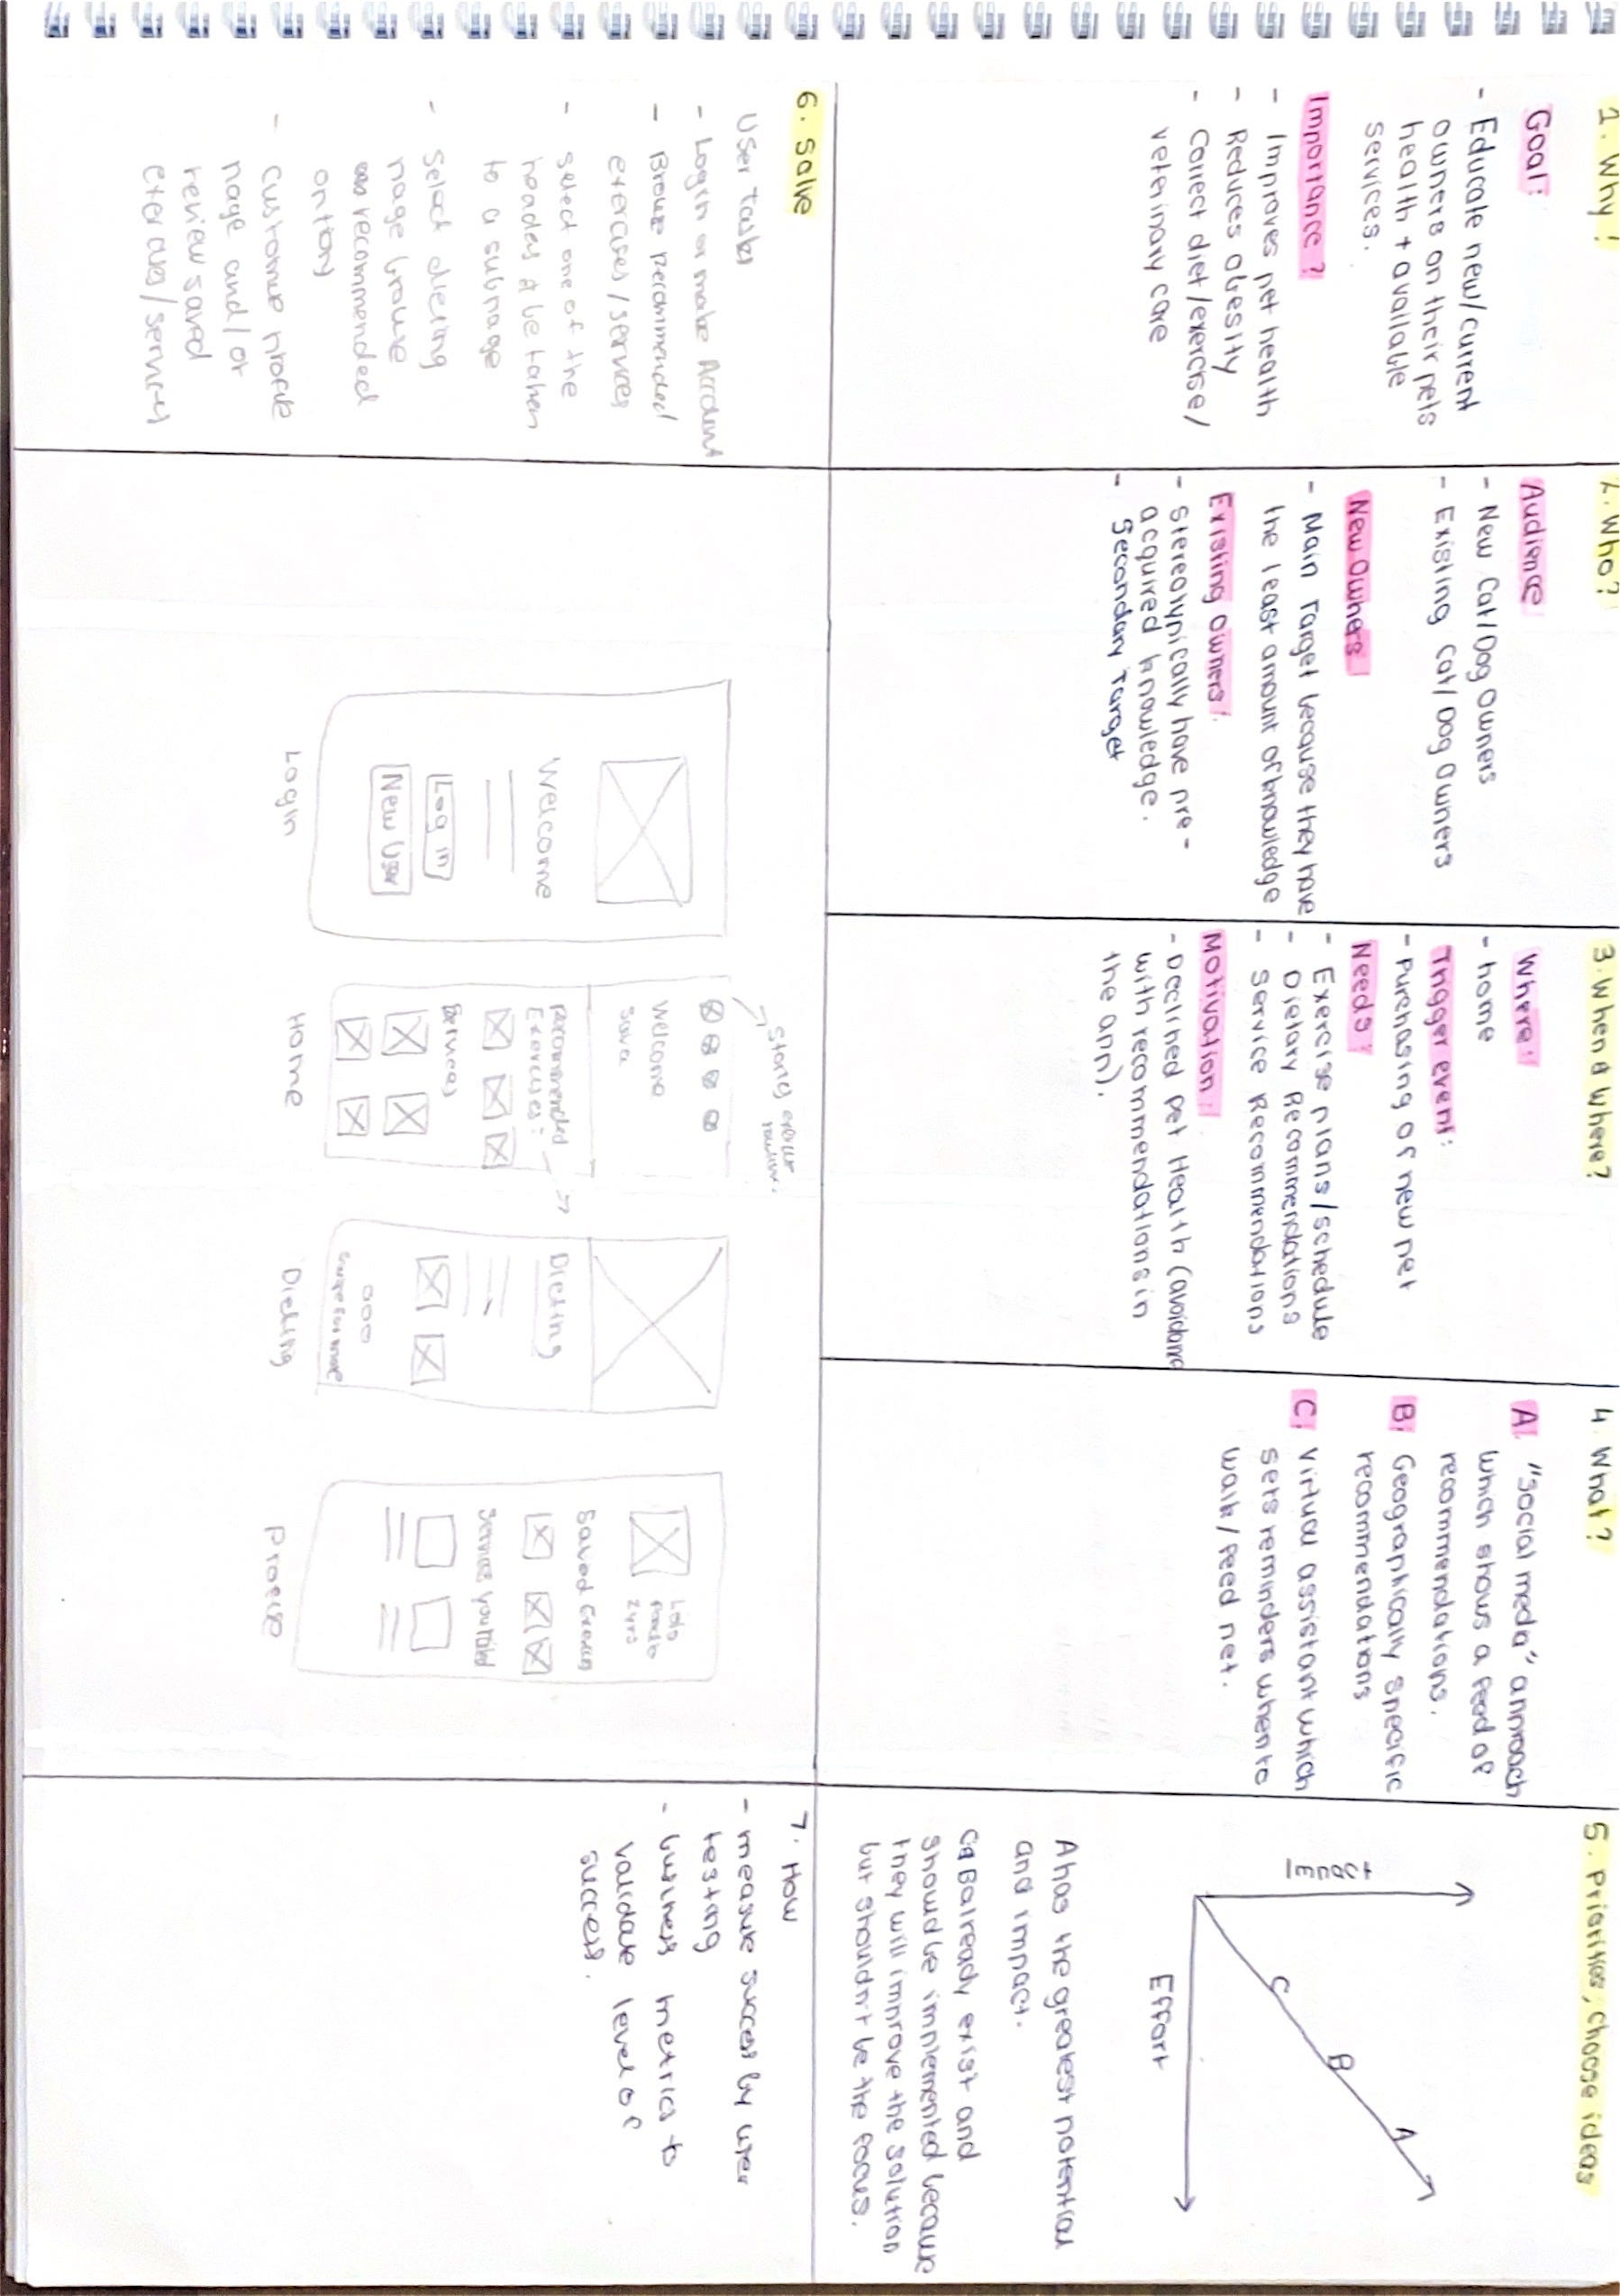 1. Why?
Goal:
- Educate new/current
owners on their pets
health + available
services.
Importance?
- Improves pet health
- Reduces obesity
- Correct diet/exercise/
veterinary care
2. Who?
Audience
- New Cat/Dog Owners
- Existing Cat/Dog Owners
New Owners
- Main Target because they have
the least amount of knowledge
Existing Owners:
- Stereotypically have pre-
acquired knowledge.
- Secondary Target
3. When & Where?
Where:
- home
Trigger event:
- Purchasing of new pet
Needs:
- Exercise plans/schedule
- Dietary Recommendations
- Service Recommendations
Motivation:
- Declined pet Health (avoidance
with recommendations in
the app).
4. What?
A. "Social media" approach
which shows a feed of
recommendations.
B. Geographically specific
recommendations
C. Virtual assistant which
sets reminders when to
walk/feed pet.
5. Priorities, Choose ideas
Impact
C
B
A
Effort
A has the greatest potential
and impact.
C & B already exist and
should be implemented because
they will improve the solution
but shouldn't be the focus.
6. Solve
User Tasks
- Login or make Account
- Browse recommended
exercises/services
- Select one of the
headers & be taken
to a subpage
- Select dieting
page browse
recommended
- Customise profile
page and/or
review saved
exercises/services
Welcome
Log in
New User
Login
Stories
Welcome
Sara
Recommended
Exercises:
Services
Home
Dieting
swipe for more
Dieting
Lola
Female
2 yrs
Saved
Services you tried
Profile
7. How
- measure success by user
testing
- business metrics to
validate level of
success.